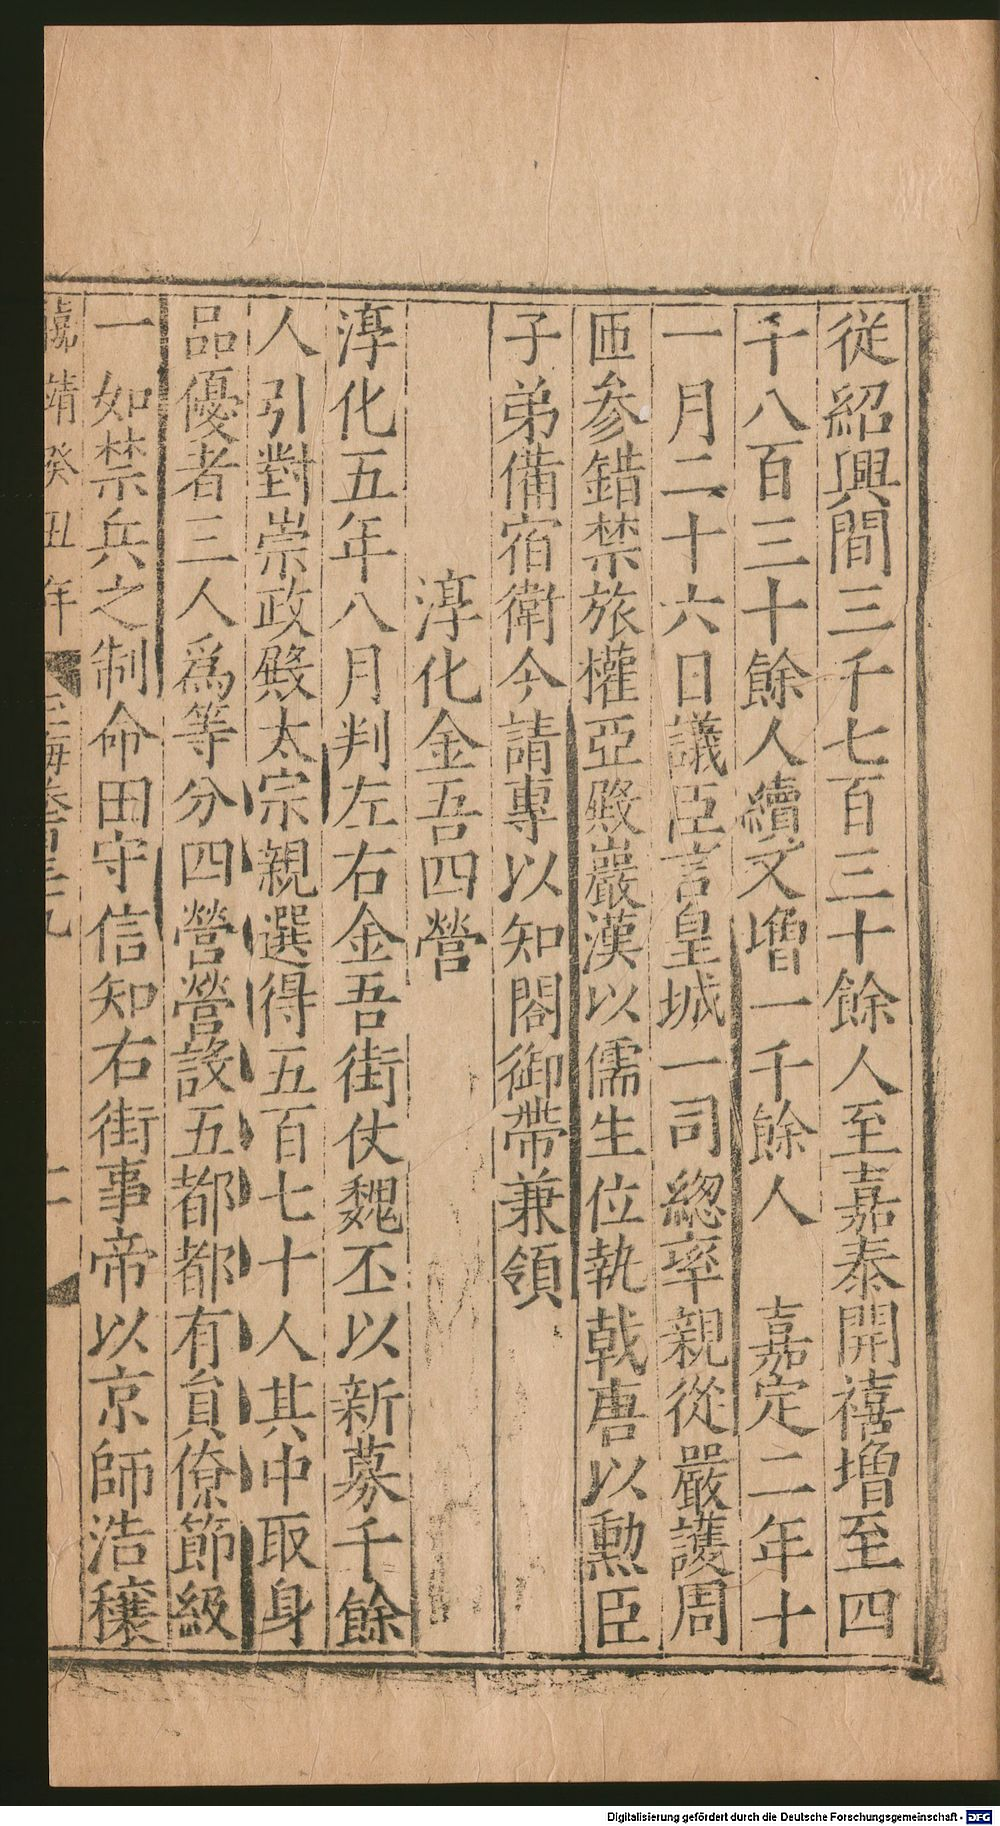 從紹興間三千七百三十餘人至嘉泰開禧增至四
千八百三十餘人續又增一千餘人　嘉定二年十
一月二十六日議臣言皇城一司總率親從嚴護周
匝参錯禁旅權亞殿巖漢以儒生位執戟唐以勲臣
子弟備宿衛今請專以知閤御帶兼領
淳化金吾四營
淳化五年八月判左右金吾街仗魏丕以新募千餘
人引對崇政殿太宗親選得五百七十人其中取身
品優者三人爲等分四營營設五都都有員僚節級
一如禁兵之制命田守信知右街事帝以京師浩穰
靖癸丑年　玉海卷百三十九　二
Digitalisierung gefördert durch die Deutsche Forschungsgemeinschaft - DFG